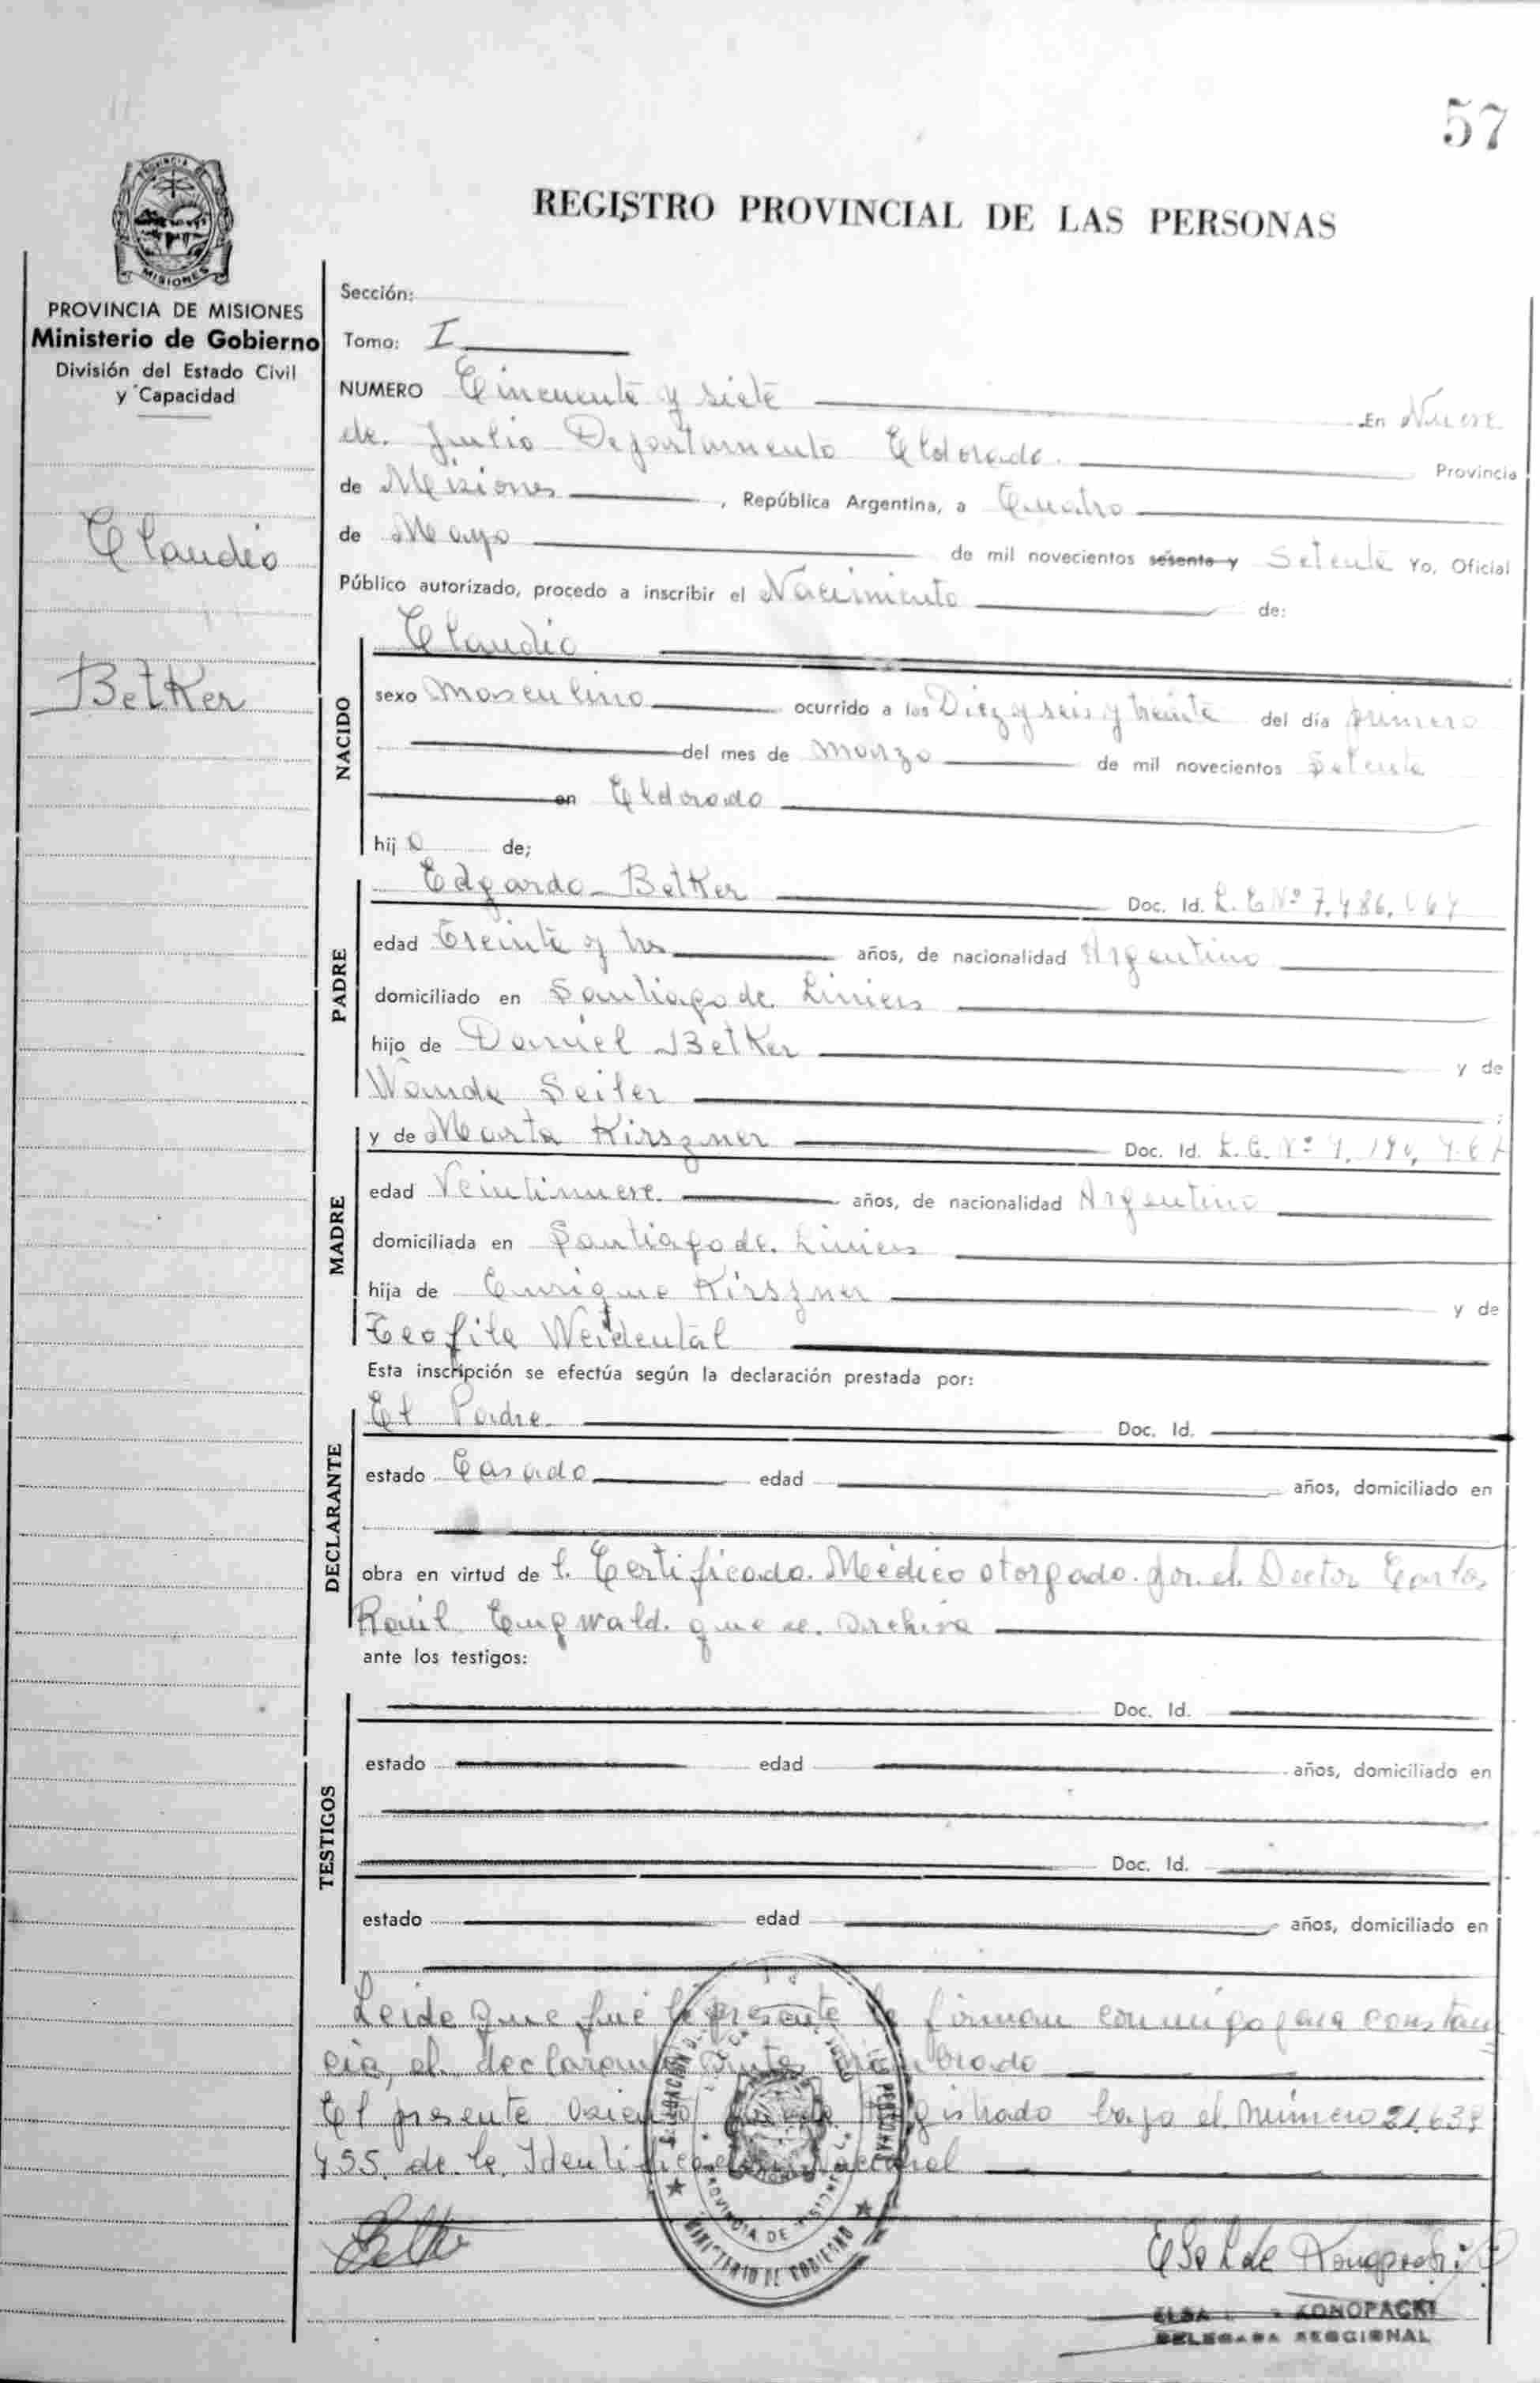 57
PROVINCIA
MISIONES
REGISTRO PROVINCIAL DE LAS PERSONAS
PROVINCIA DE MISIONES
Ministerio de Gobierno
División del Estado Civil
y Capacidad
Claudio
Betker
Sección:
Tomo: I
NUMERO Cincuenta y siete En Nueve
de Julio Departamento Eldorado. Provincia
de Misiones , República Argentina, a Cuatro
de Mayo de mil novecientos sesenta y Setenta Yo, Oficial
Público autorizado, procedo a inscribir el Nacimiento de:
Claudio
NACIDO
sexo Masculino ocurrido a las Diez y seis y treinta del día primero
del mes de Marzo de mil novecientos Setenta
en Eldorado
hijo de;
PADRE
Edgardo Betker Doc. Id. L. E Nº 7.486.
edad Treinta y tres años, de nacionalidad Argentino
domiciliado en Santiago de Liniers
hijo de Daniel Betker y de
Wanda Seiler
MADRE
y de Marta Kirszner Doc. Id. L. C. Nº
edad Veintinueve años, de nacionalidad Argentina
domiciliada en Santiago de Liniers
hija de Enrique Kirszner y de
Teofila Weidental
Esta inscripción se efectúa según la declaración prestada por:
DECLARANTE
El Padre Doc. Id.
estado Casado edad años, domiciliado en
obra en virtud de l. Certificado Médico otorgado por el Doctor Carlos
Raúl Engwald que se archiva
ante los testigos:
TESTIGOS
Doc. Id.
estado edad años, domiciliado en
Doc. Id.
estado edad años, domiciliado en
Leida que fué la presente la firman conmigo para constan
cia, el declarante antes nombrado
El presente asiento queda registrado bajo el número 21.639
455 de la Identificación Nacional
PROVINCIA DE MISIONES
MINISTERIO DE GOBIERNO
ELSA KONOPACKI
DELEGADA REGIONAL